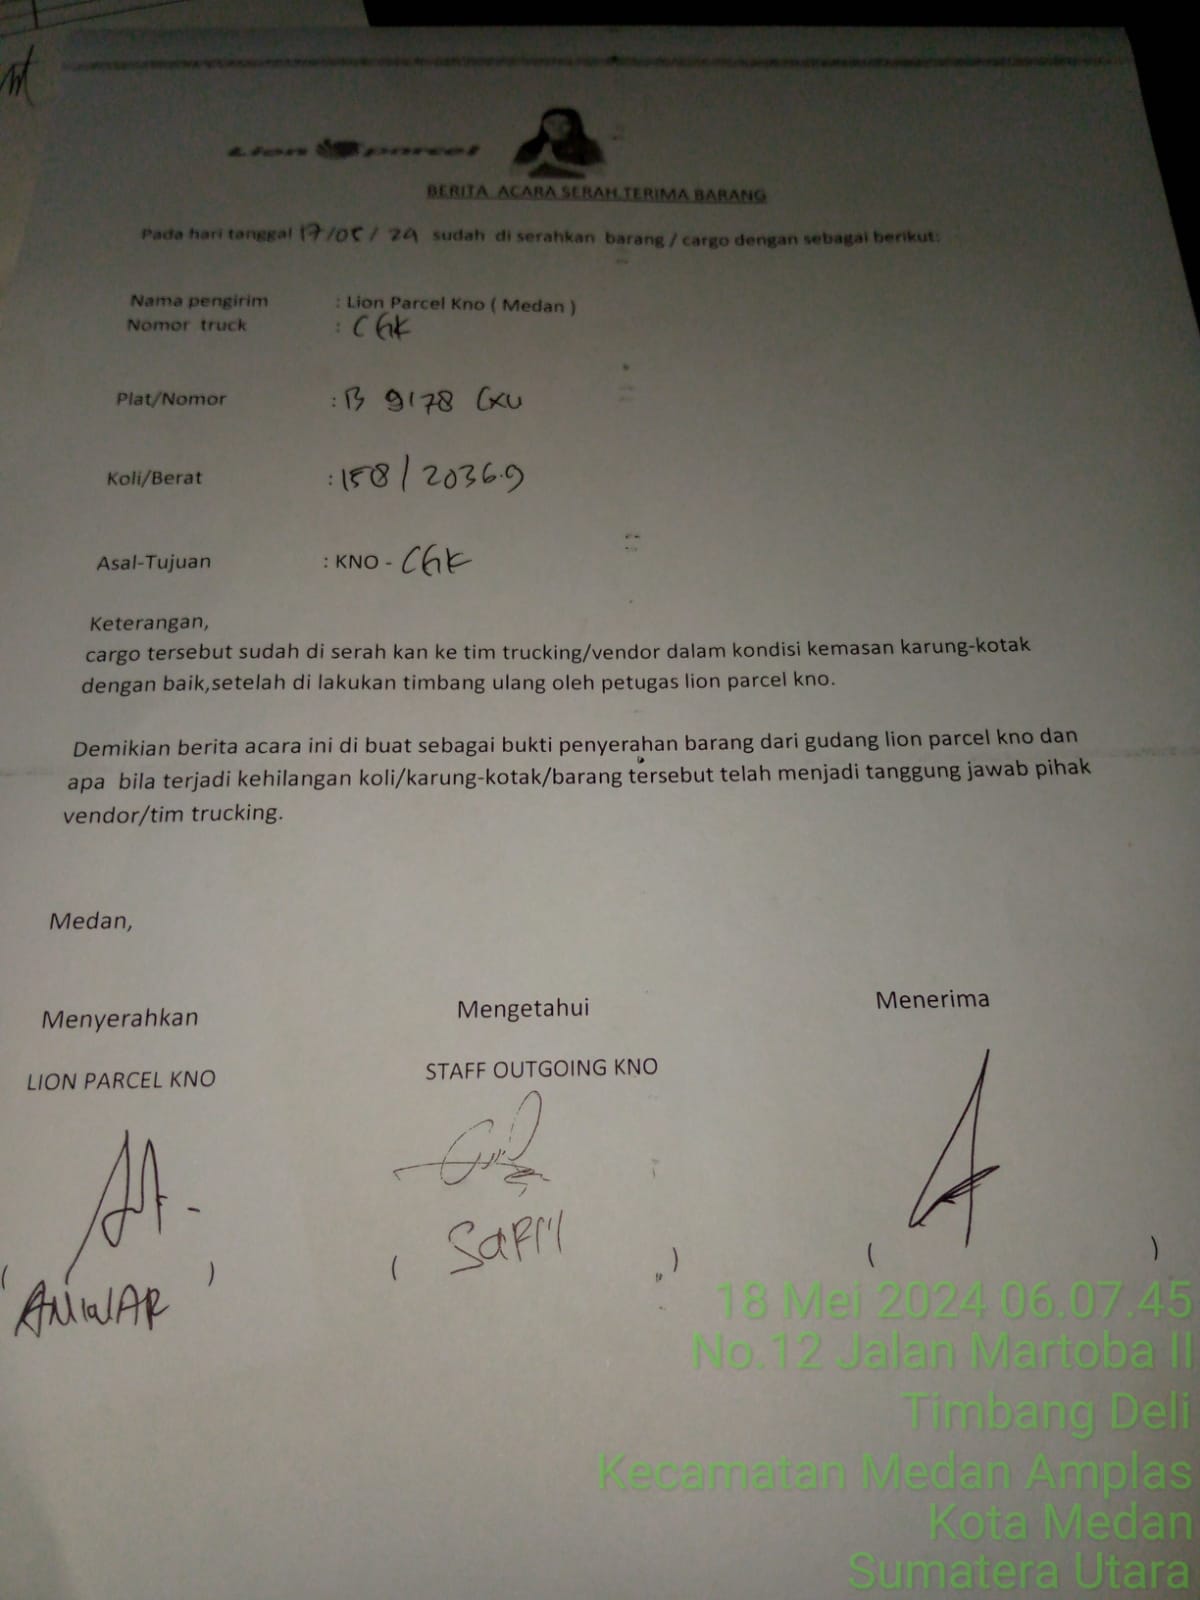 Lion parcel
BERITA ACARA SERAH TERIMA BARANG
Pada hari tanggal 17/05/24 sudah di serahkan barang / cargo dengan sebagai berikut:
Nama pengirim : Lion Parcel Kno ( Medan )
Nomor truck : CGK
Plat/Nomor : B 9178 CXU
Koli/Berat : 158 / 2036.9
Asal-Tujuan : KNO - CGK
Keterangan,
cargo tersebut sudah di serah kan ke tim trucking/vendor dalam kondisi kemasan karung-kotak
dengan baik,setelah di lakukan timbang ulang oleh petugas lion parcel kno.
Demikian berita acara ini di buat sebagai bukti penyerahan barang dari gudang lion parcel kno dan
apa bila terjadi kehilangan koli/karung-kotak/barang tersebut telah menjadi tanggung jawab pihak
vendor/tim trucking.
Medan,
Menyerahkan Mengetahui Menerima
LION PARCEL KNO STAFF OUTGOING KNO
( ) ( ) ( )
ANWAR
18 Mei 2024 06.07.45
No.12 Jalan Martoba II
Timbang Deli
Kecamatan Medan Amplas
Kota Medan
Sumatera Utara